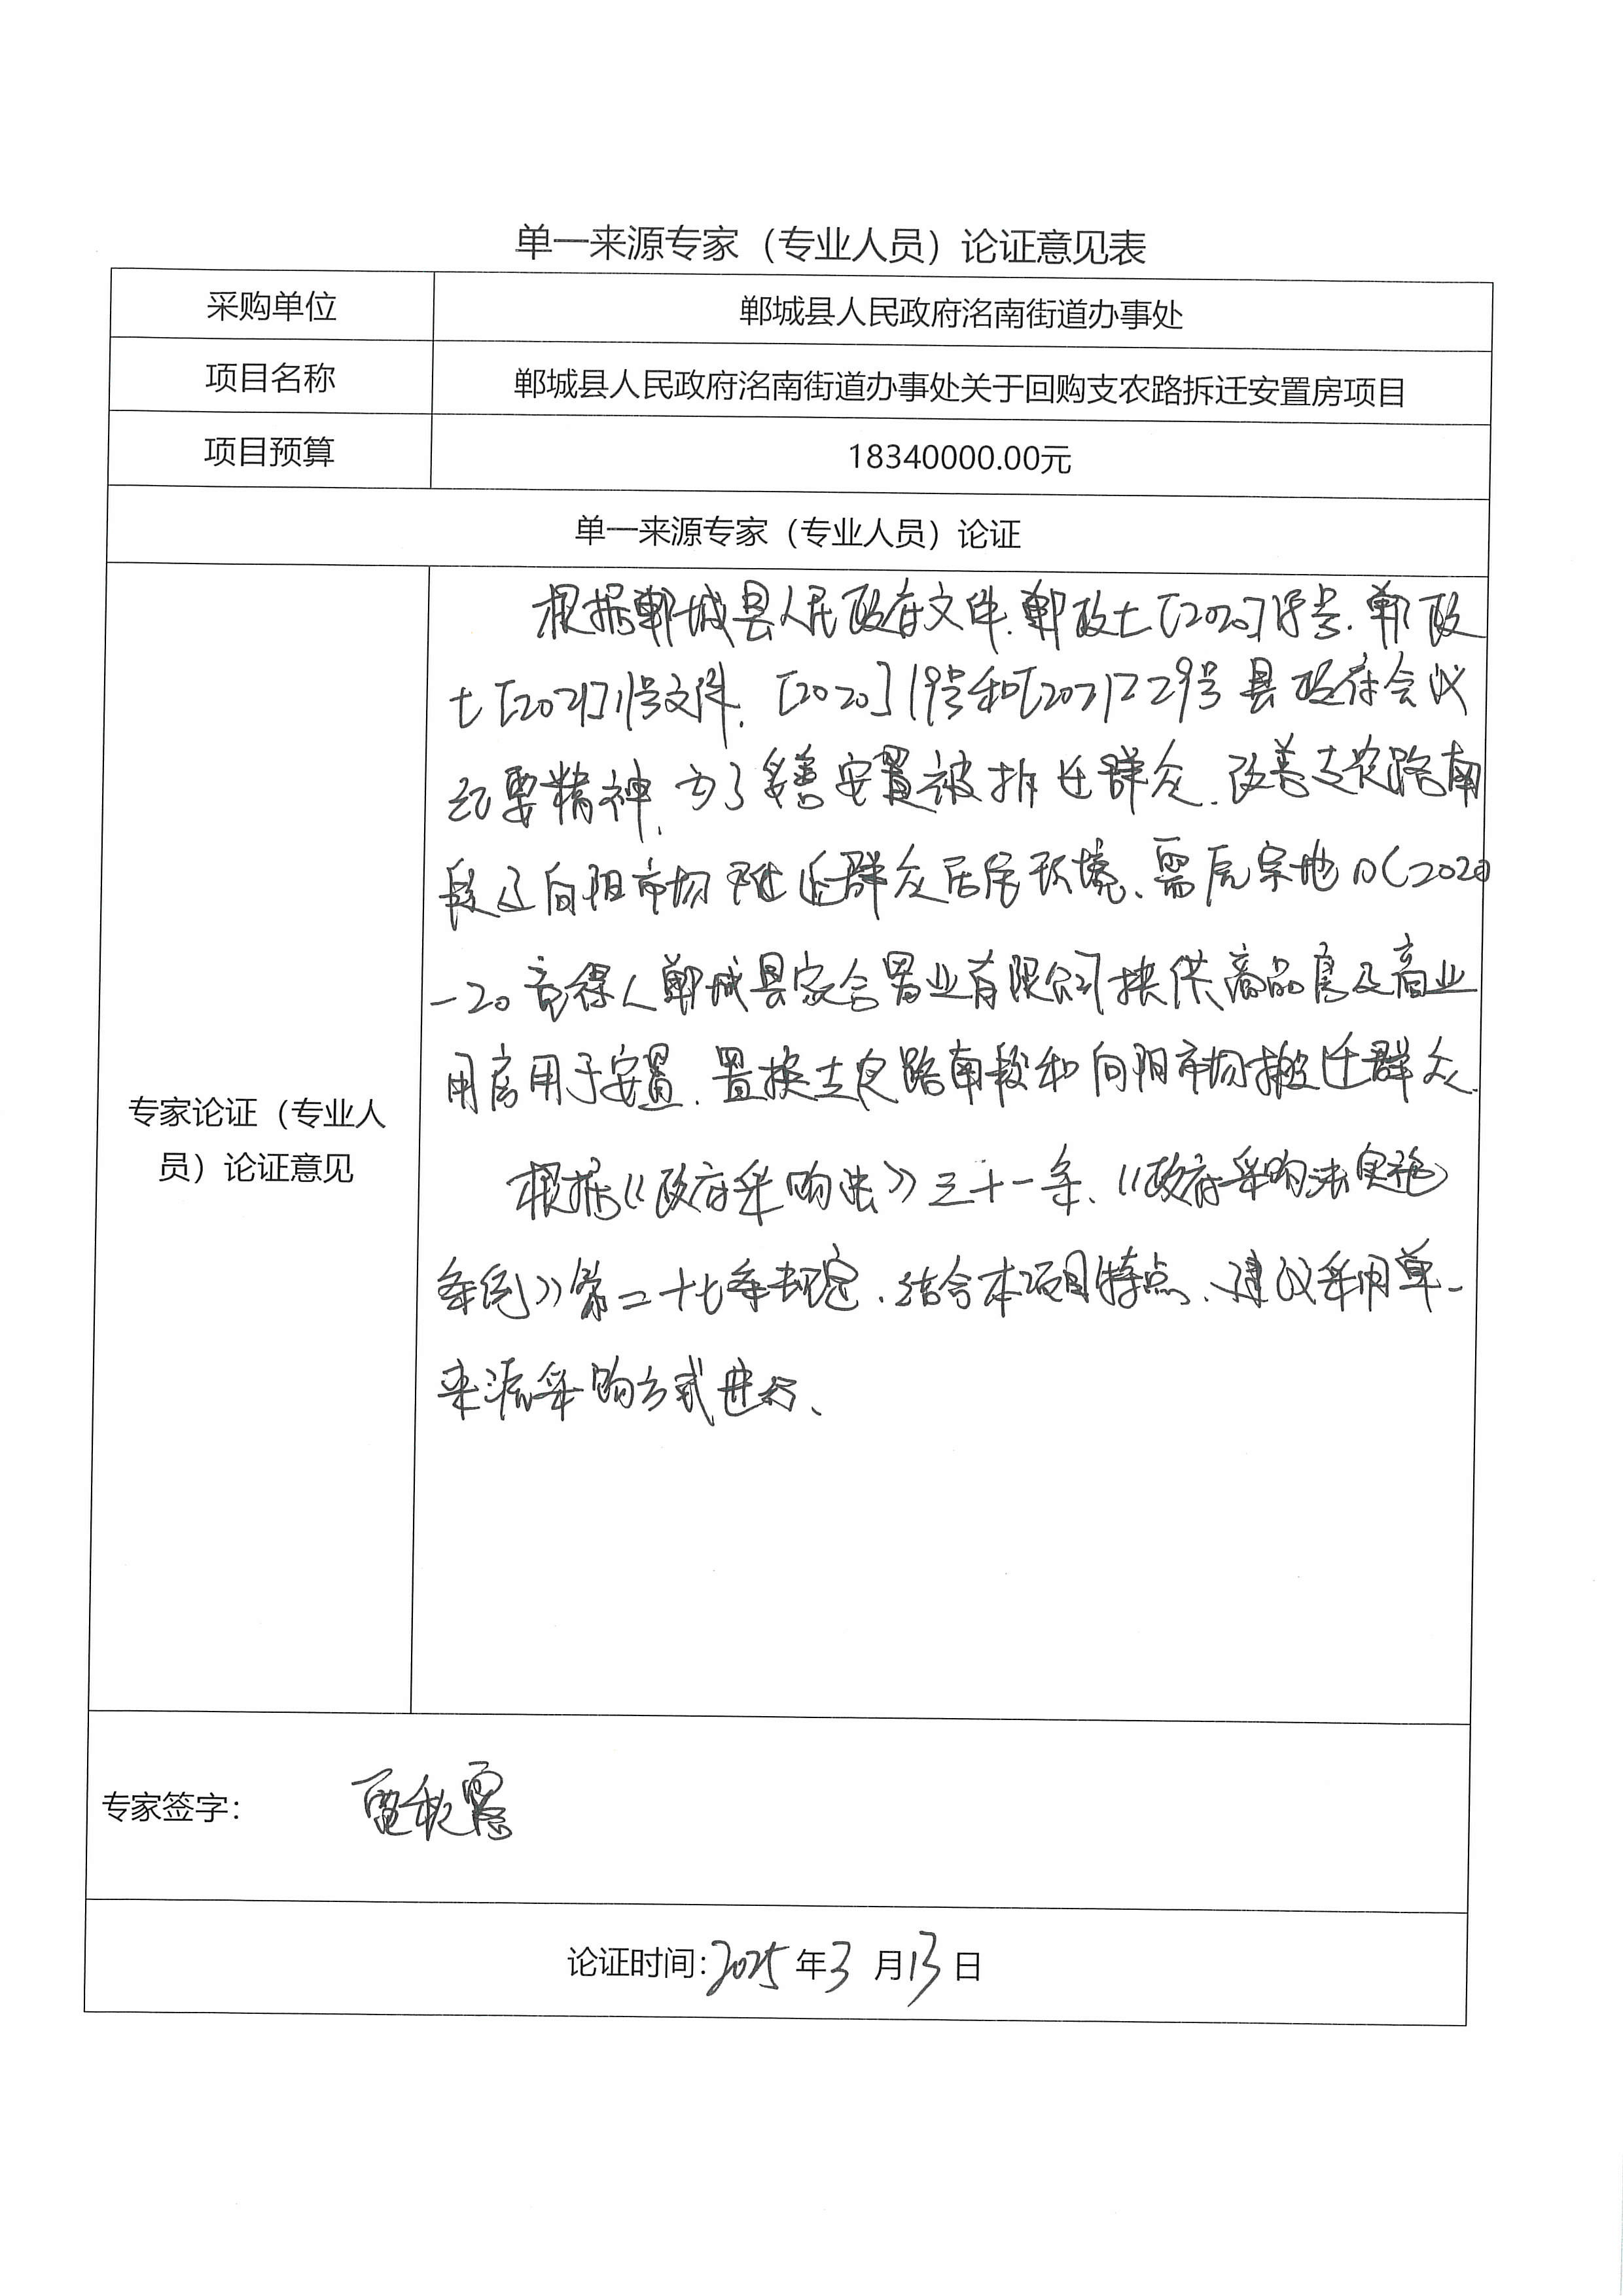 单一来源专家（专业人员）论证意见表
采购单位
郸城县人民政府洺南街道办事处
项目名称
郸城县人民政府洺南街道办事处关于回购支农路拆迁安置房项目
项目预算
18340000.00元
单一来源专家（专业人员）论证
专家论证（专业人
员）论证意见
根据郸城县人民政府文件、郸政土[2020]号、郸政
土[2021]11号文件、[2020]19号和[2021]29号县政府会议
纪要精神，为了妥善安置被拆迁群众、改善支农路南
段及向阳市场附近群众居住环境、需宗地DC2020
-20竞得人郸城县家合置业有限公司提供商品房及商业
用房用于安置、置换支农路南段和向阳市场搬迁群众.
根据《政府采购法》三十一条、《政府采购法实施
条例》第二十七条规定、结合本项目特点、建议采用单一
来源采购方式进行、
专家签字：
论证时间：2025年3月13日